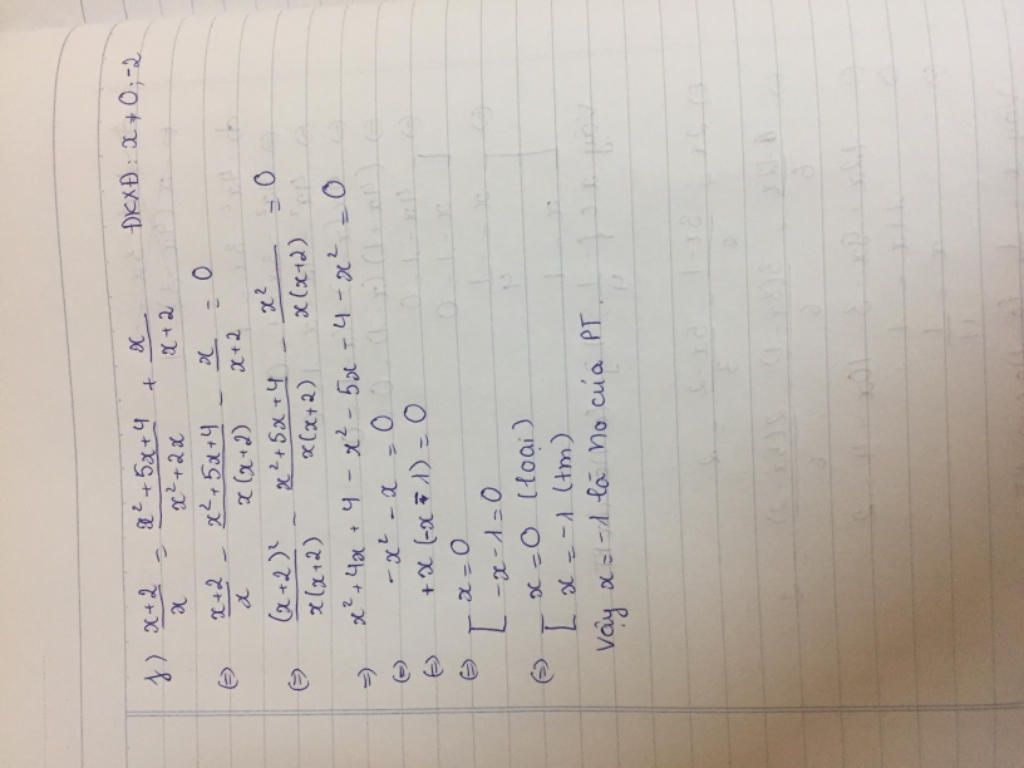 f) x+2/x = x²+5x+4/x²+2x + x/x+2 ĐKXĐ: x ≠ 0; -2
(=) x+2/x - x²+5x+4/x(x+2) - x/x+2 = 0
(=) (x+2)²/x(x+2) - x²+5x+4/x(x+2) - x²/x(x+2) = 0
=) x²+4x+4-x²-5x-4-x² = 0
(=) -x²-x=0
(=) +x(-x-1)=0
(=) [ x=0
-x-1=0
(=) [ x=0 (loại)
x=-1 (tm)
Vậy x=-1 là no của PT.